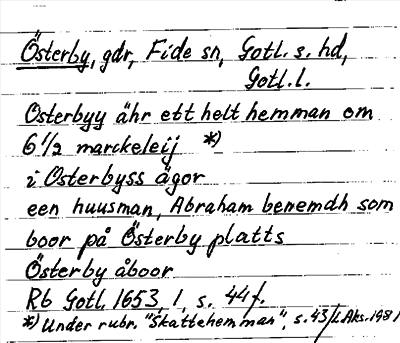 Österby, gdr, Fide sn, Gotl. s. hd,
Gotl. l.
Osterbyy ähr ett helt hemman om
6 1/2 marckeleij *)
i Osterbyss ägor
een huusman, Abraham benemdh som
boor på Österby platts
Österby åboor
Rb Gotl. 1653, 1, s. 44 f.
*) Under rubr. "Skattehemman", s. 43 Aks. 1981